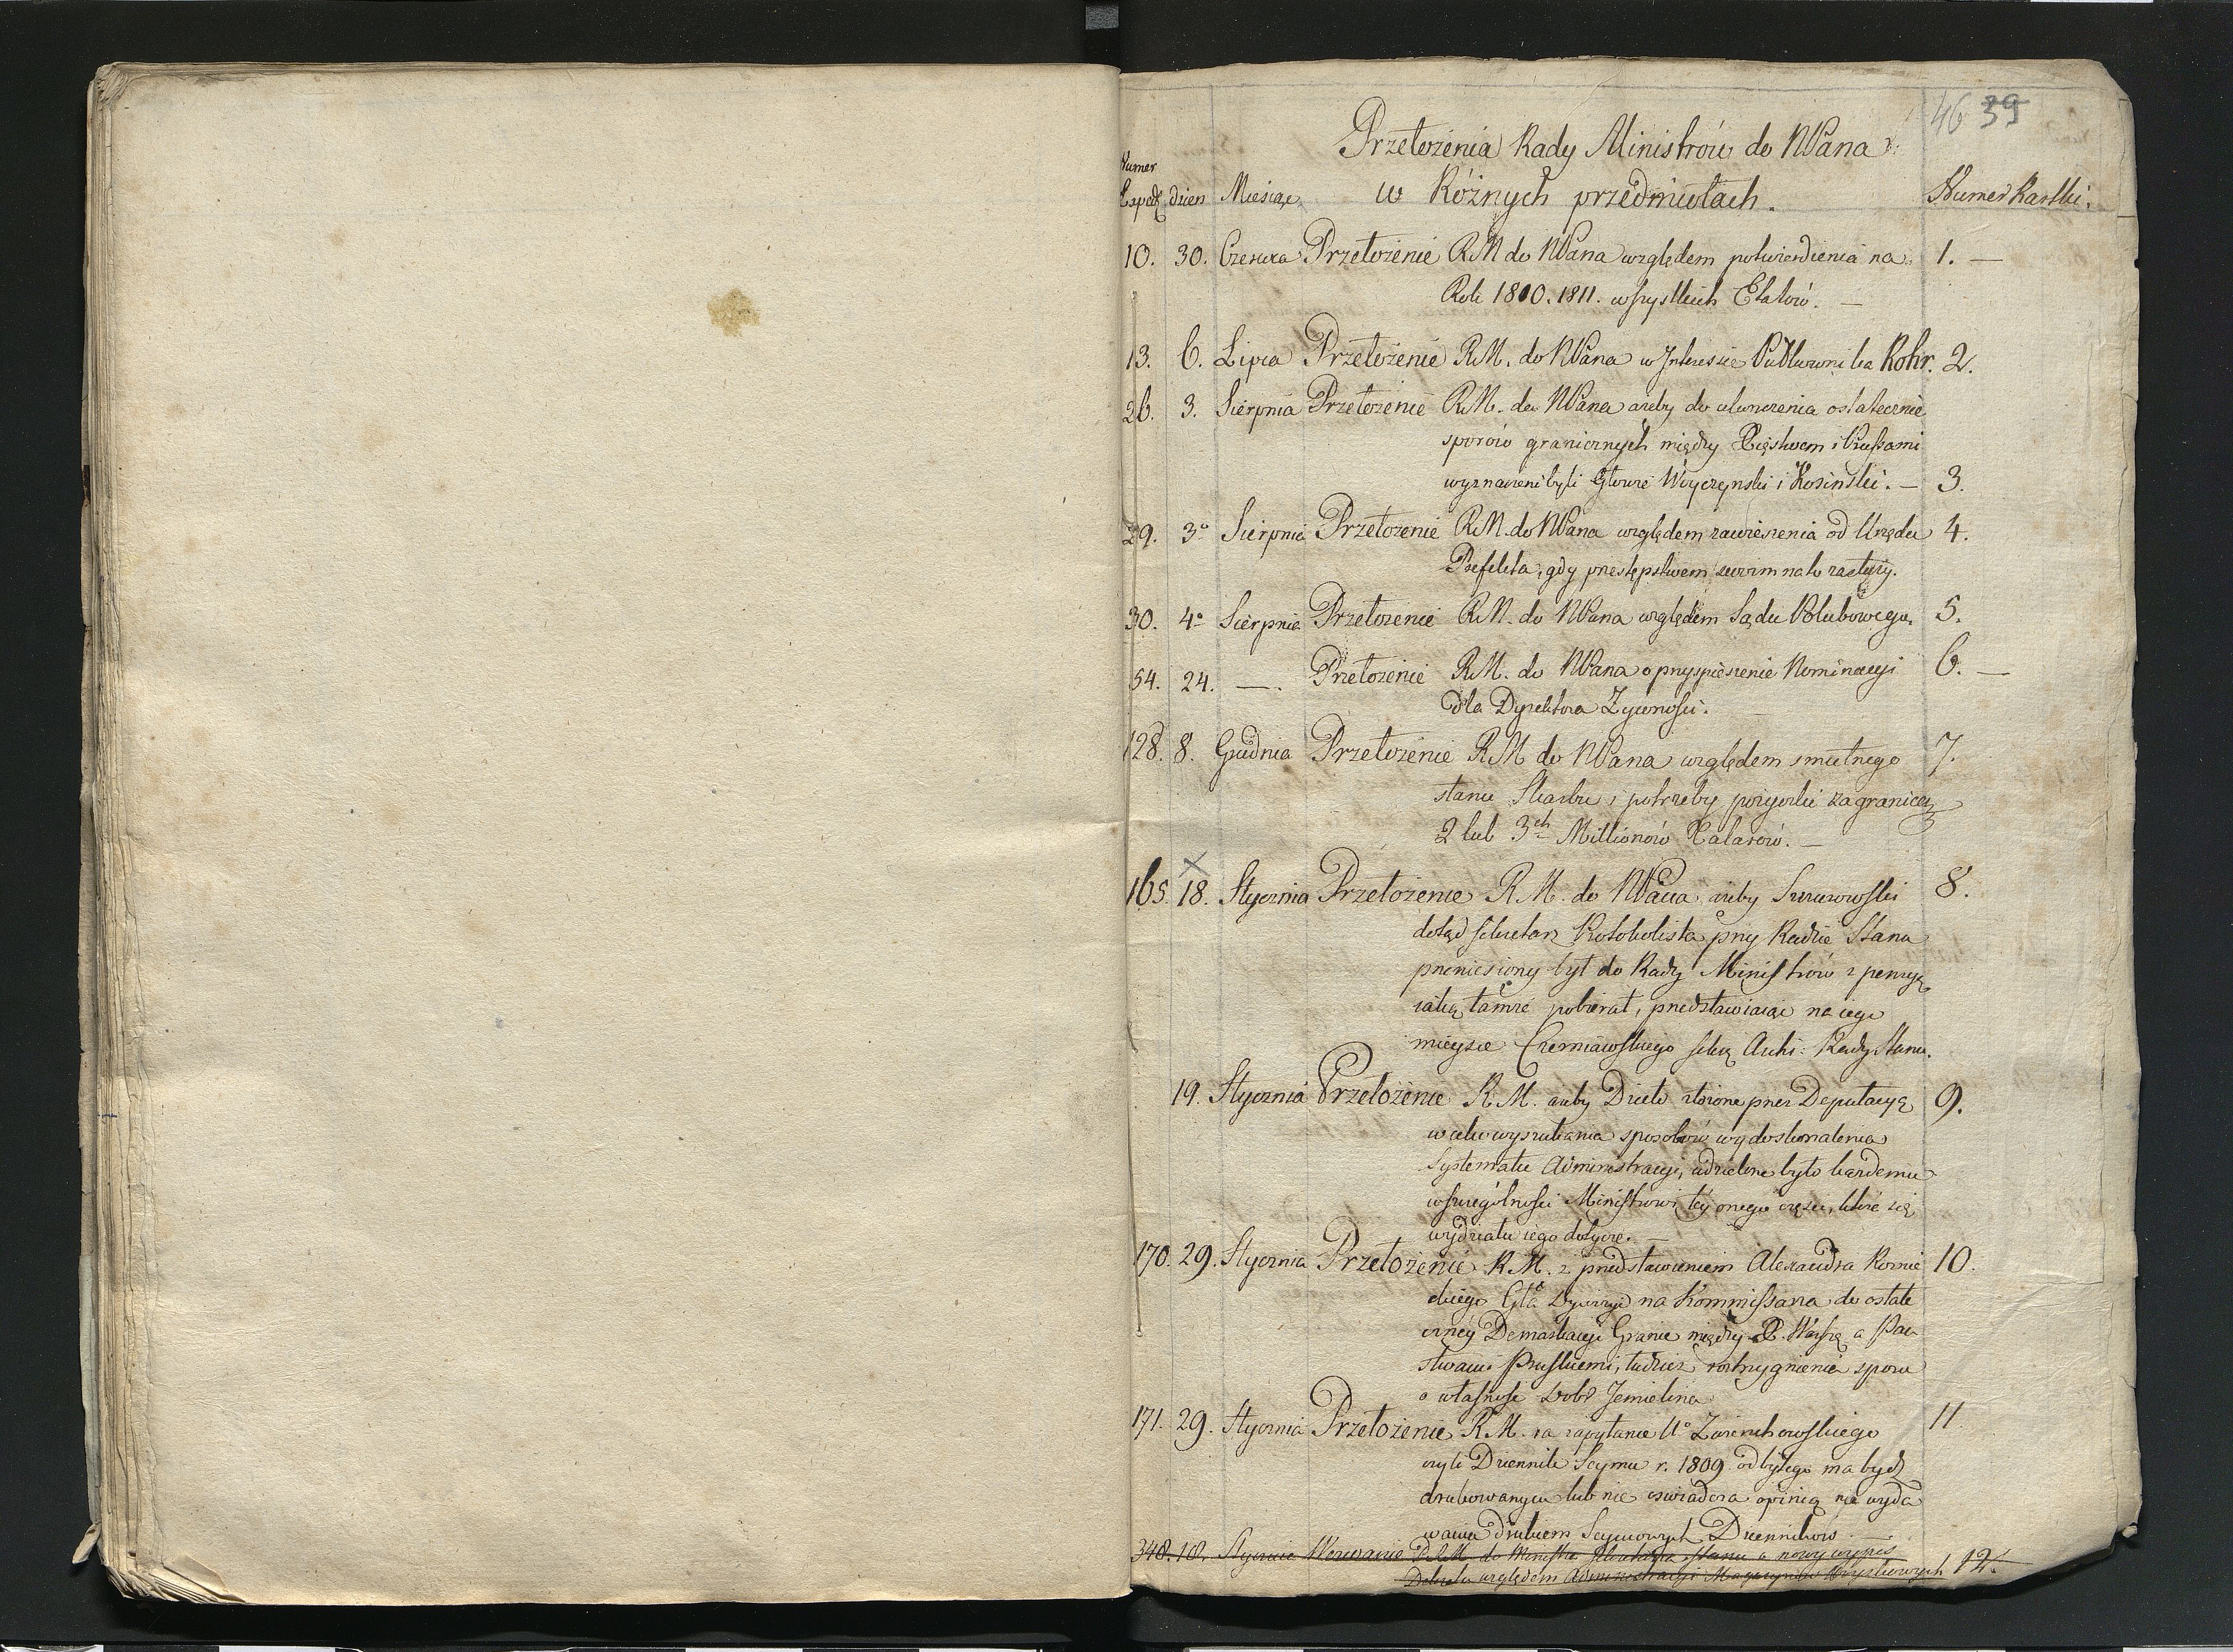 46 39
Przełożenia Rady Ministrów do NPana
w Różnych przedmiotach.
Numer Exped. dzien Miesiąc Numer Kartki.
10. 30. Czerwca Przełożenie RM do NPana względem potwierdzenia na 1. —
Rok 1810.1811. wszystkich Etatów. —
13. 6. Lipca Przełożenie RM. do NPana w Interesie Pułkownika Rohr. 2.
26. 3. Sierpnia Przełożenie RM. do NPana ażeby do ukonczenia ostatecznie
sporów granicznych między Xięstwem i Prußami
wyznaczeni byli Głowni Woyczynski i Kosinski. — 3.
29. 3° Sierpnia Przełożenie RM. do NPana względem zawieszenia od Urzędu 4.
Prefekta, gdy przestępstwem
30. 4° Sierpnia Przełożenie RM. do NPana względem Sądu Polubowego. 5.
54. 24. —. Przełożenie RM. do NPana o przyspieszenie Nominacyi 6. —
dla Dyrektora Zywnosci.
128. 8. Grudnia Przełożenie RM do NPana względem smutnego 7.
stanu Skarbu i potrzeby pożyczki zagranicą
2 lub 3ch Millionów Talarów. —
165. 18. Stycznia Przełożenie R M. do NPana, ażeby
dotąd sekretarz Protokolista przy Radzie Stanu
przeniesiony był do Rady Ministrów z pensyą
iaką tamże pobierał, przedstawiaiąc na iego
mieysce Czerniawskiego sekrę Archi: Rady Stanu.
19. Stycznia Przełożenie R.M. ażeby Dzieło złożone przez Deputacyą 9.
w celu wyszukania sposobów wydoskonalenia
Systematu Administracyi, udzielone było każdemu
w szczególności Ministrowi tey onego części, która się
wydziału iego dotycze. —
170. 29. Stycznia Przełożenie R.M. z przedstawieniem Alexandra Rożnie 10.
ckiego Gła Dywizyi na Kommissarza do ostate
czney Demarkacyi Granic między X. Warszą a Pań
stwami Pruskiemi, tudzież rozstrzygnienia sporu
o własność Dobr Jemielina
171. 29. Stycznia Przełożenie R.M. na zapytanie 11.
czyli Dziennik Seymu r. 1809 odbytego ma bydz
drukowanym lub nie oswiadcza opinią nie wyda
wania drukiem Seymowych Dzienników. —
348. 18. Stycznia Wezwanie RM do Ministra Sekretarza Stanu o nowy wypis
Dekretu względem Administracyi Magazynów 12.